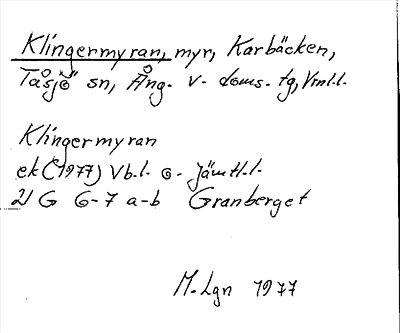 Klingermyran, myr, Karbäcken,
Tåsjö sn, Ång. v. doms. tg, Vrnl.l.
Klingermyran
ek (1977) Vb.l. o. Jämtl.l.
21 G 6-7 a-b Granberget
M. Lgn 1977